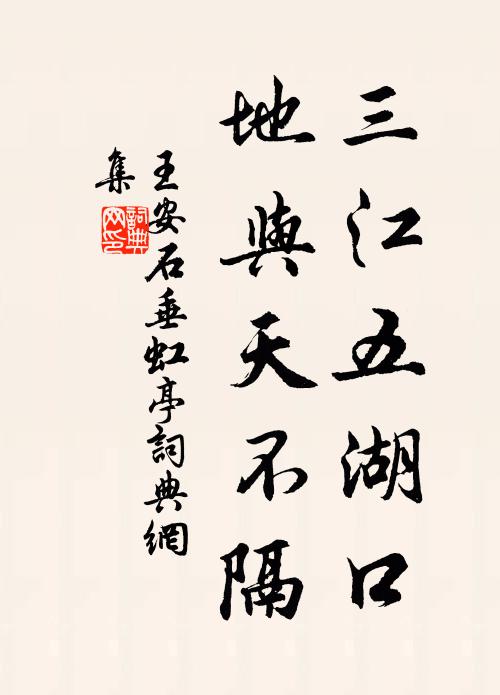 三江五湖口
地與天不隔
王安石垂虹亭詞典網
集
詞典網印